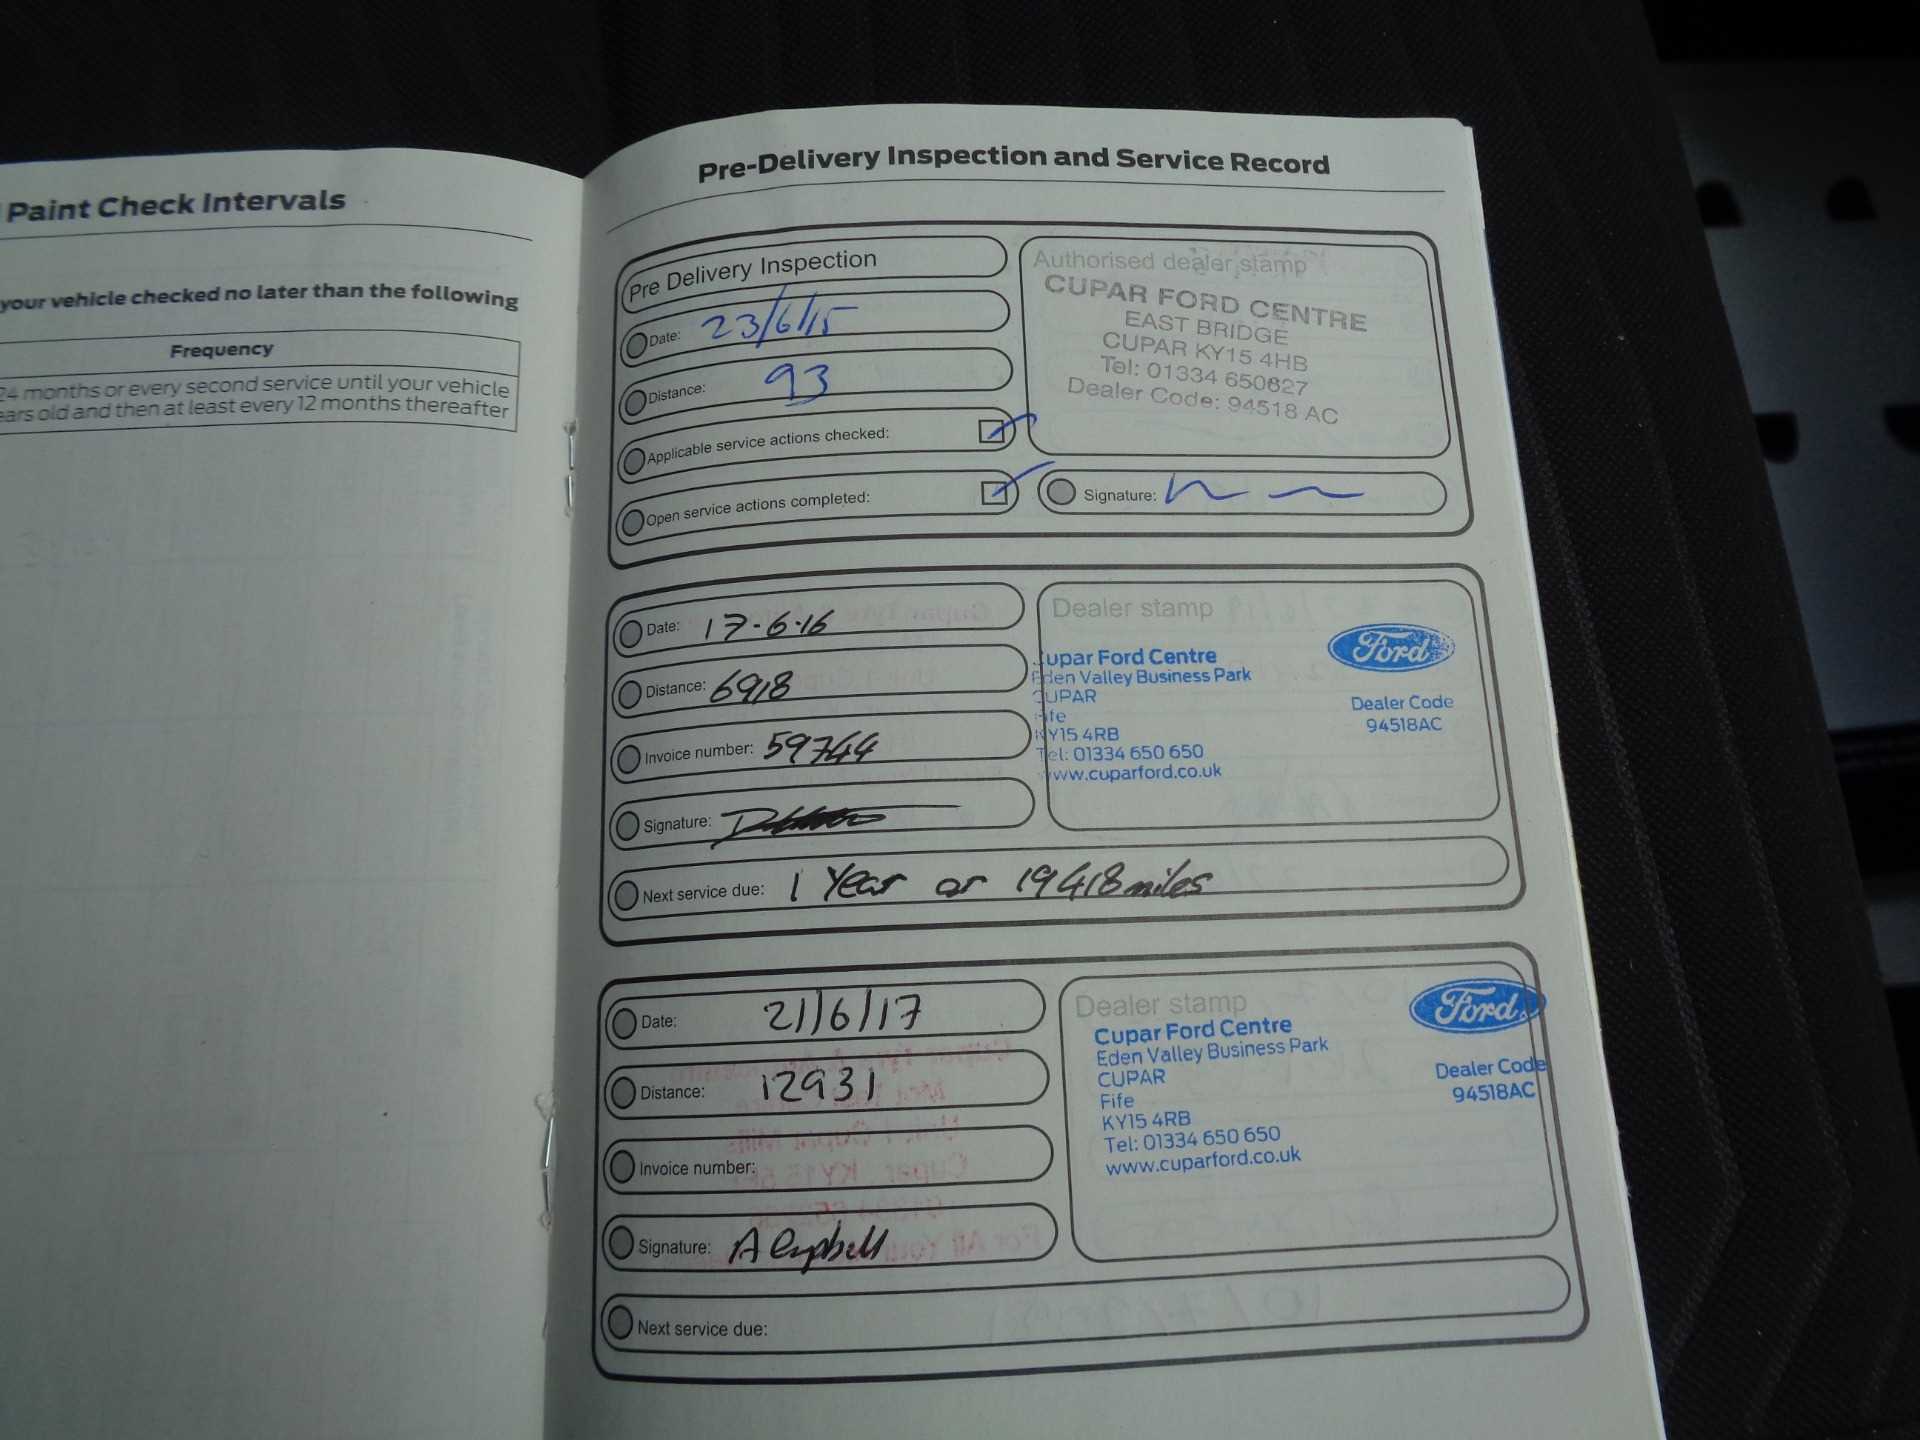 Paint Check Intervals
your vehicle checked no later than the following
Frequency
24 months or every second service until your vehicle
ears old and then at least every 12 months thereafter
Pre-Delivery Inspection and Service Record
Pre Delivery Inspection
Date: 23/6/15
Distance: 93
Applicable service actions checked:
Open service actions completed:
Authorised dealer stamp
CUPAR FORD CENTRE
EAST BRIDGE
CUPAR KY15 4HB
Tel: 01334 650627
Dealer Code: 94518 AC
Signature:
Date: 17-6-16
Distance: 6918
Invoice number: 59744
Signature:
Next service due: 1 Year or 19418 miles
Dealer stamp
Ford
Cupar Ford Centre
Eden Valley Business Park
CUPAR
Fife
KY15 4RB
Tel: 01334 650 650
www.cuparford.co.uk
Dealer Code
94518AC
Date: 21/6/17
Distance: 12931
Invoice number:
Signature: A Campbell
Next service due:
Dealer stamp
Ford
Cupar Ford Centre
Eden Valley Business Park
CUPAR
Fife
KY15 4RB
Tel: 01334 650 650
www.cuparford.co.uk
Dealer Code
94518AC